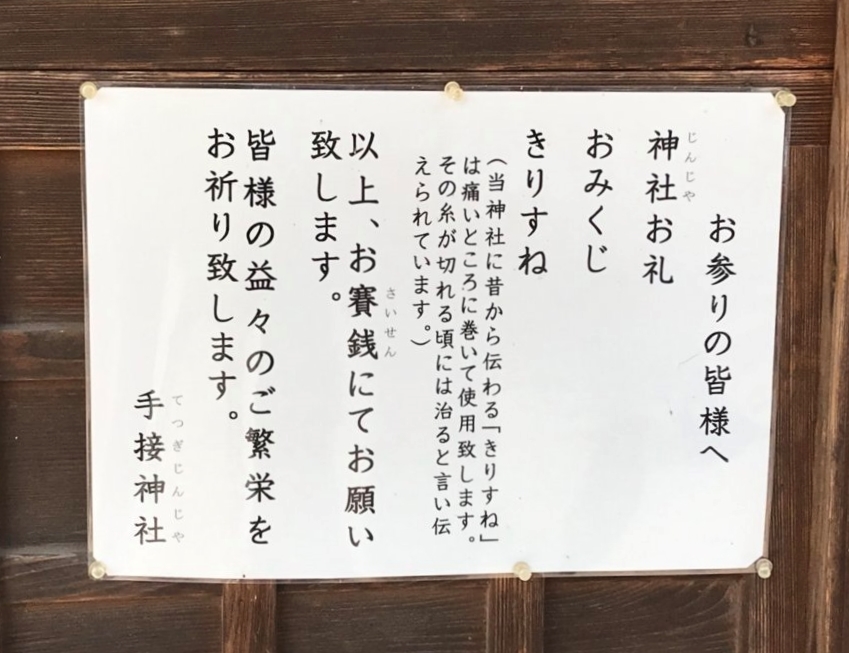 お参りの皆様へ
じんじや
神社お礼
おみくじ
きりすね
(当神社に昔から伝わる「きりすね」
は痛いところに巻いて使用致します。
その糸が切れる頃には治ると言い伝
えられています。)
さいせん
以上、お賽銭にてお願い
致します。
皆様の益々のご繁栄を
お祈り致します。
てつぎじんじや
手接神社